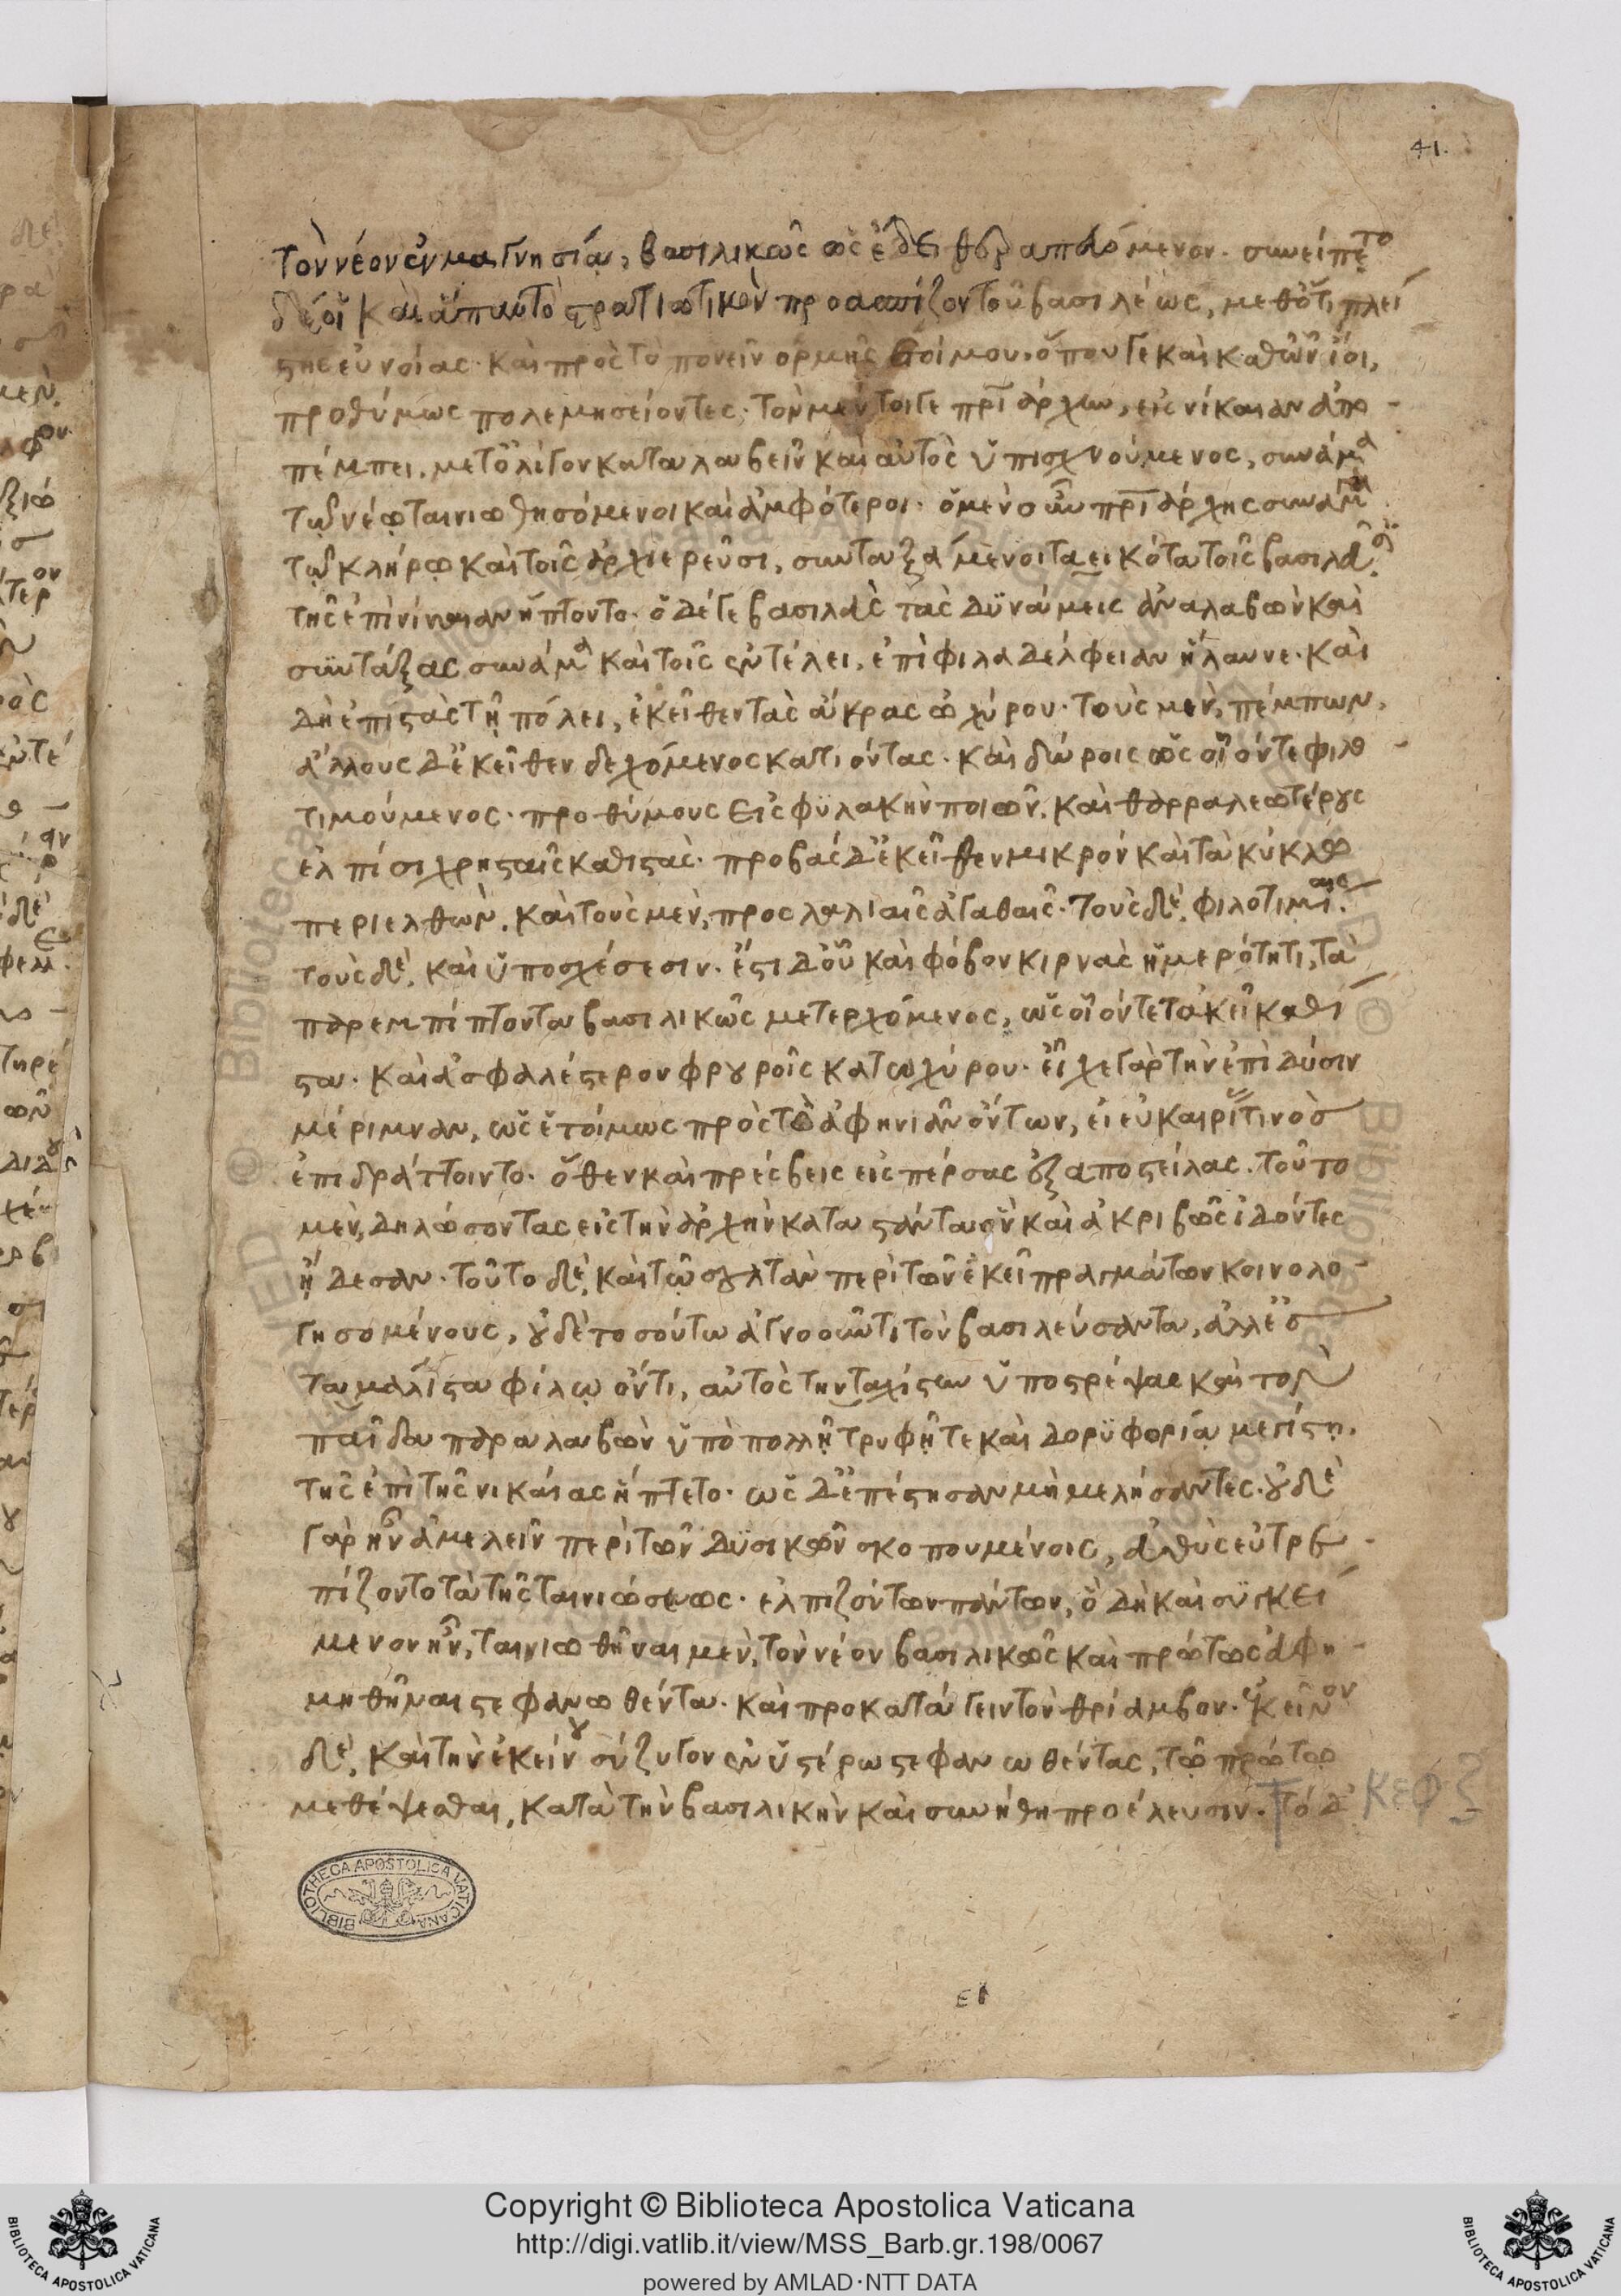 41.
τὸν νέον ἐν μαγνησίᾳ, βασιλικῶς ὡς ἔδει θεραπευόμενον. συνείπετο
δέ οἱ καὶ ἅπαν τὸ στρατιωτικὸν προασπίζον τοῦ βασιλέως, μεθ' ὅτι πλεί
στης εὐνοίας. καὶ πρὸς τὸ πονεῖν ὁρμῆς ἑτοίμου. ὅπου γε καὶ καθ' ὧν ἴοι,
προθύμως πολεμησείοντες. τὸν μέντοιγε πατριάρχην, εἰς νίκαιαν ἀπο
πέμπει. μετ' ὀλίγον καταλαβεῖν καὶ αὐτὸς ὑπισχνούμενος, συνάμα
τῷ νέῳ ταινιωθησόμενοι καὶ ἀμφότεροι. ὁ μὲν οὖν πατριάρχης συνάμα
τῷ κλήρῳ καὶ τοῖς ἀρχιερεῦσι, συνταξάμενοι τὰ εἰκότα τοῖς βασιλεῦσι.
τῆς ἐπὶ νίκαιαν ἥπτοντο. ὁ δέ γε βασιλεὺς τὰς δυνάμεις ἀναλαβὼν καὶ
συντάξας συνάμα καὶ τοῖς ἐν τέλει, ἐπὶ φιλαδέλφειαν ἤλαυνε. καὶ
δὴ ἐπιστὰς τῇ πόλει, ἐκεῖθεν τὰς ἄκρας ὠχύρου. τοὺς μὲν, πέμπων.
ἄλλους δ' ἐκεῖθεν δεχόμενος κατιόντας. καὶ δώροις ὡς οἷόν τε φιλο
τιμούμενος. προθύμους εἰς φυλακὴν ποιῶν. καὶ θαρραλεωτέρους
ἐλπίσι χρησταῖς καθιστὰς. προβὰς δ' ἐκεῖθεν μικρόν καὶ τὰ κύκλῳ
περιελθὼν. καὶ τοὺς μὲν, προσλαλιαῖς ἀγαθαῖς. τοὺς δὲ, φιλοτιμίαις.
τοὺς δὲ, καὶ ὑποσχέσεσιν. ἔστι δ' οὗ καὶ φόβον κιρνὰς ἡμερότητι, τὰ
παρεμπίπτοντα βασιλικῶς μετερχόμενος, ὡς οἷόν τε τἀκεῖ καθί
στα. καὶ ἀσφαλέστερον φρουροῖς κατωχύρου. εἶχε γὰρ τὴν ἐπὶ δύσιν
μέριμναν, ὡς ἑτοίμως πρὸς τὸ ἀφηνιᾶν ὄντων, εἰ εὐκαιρίας τινὸς
ἐπιδράττοιντο. ὅθεν καὶ πρέσβεις εἰς πέρσας ἐξαποστείλας. τοῦτο
μὲν, δηλώσοντας εἰς τὴν ἀρχὴν καταστάντα ὃν καὶ ἀκριβῶς ἰδόντες
ᾔδεσαν. τοῦτο δὲ, καὶ τῷ σουλτὰν περὶ τῶν ἐκεῖ πραγμάτων κοινολο
γησομένους, οὐδὲ τοσούτω ἀγνοοῦντι τὸν βασιλεύσαντα, ἀλλ' ἐς
τα μάλιστα φίλῳ ὄντι, αὐτὸς τὴν ταχίστην ὑποστρέψας καὶ τὸν
παῖδα παραλαβὼν ὑπὸ πολλῇ τρυφῇ τε καὶ δορυφορίᾳ μεγίστῃ.
τῆς ἐπὶ τῆς νικαίας ἥπτετο. ὡς δ' ἐπέστησαν μὴ μελήσαντες. οὐδὲ
γὰρ ἦν ἀμελεῖν περὶ τῶν δυσικῶν σκοπουμένοις, εὐθὺς εὐτρε
πίζοντο τὰ τῆς ταινιώσεως. ἐλπιζόντων πάντων, ὃ δὴ καὶ συγκεί
μενον ἦν, ταινιωθῆναι μὲν, τὸν νέον βασιλικῶς καὶ πρώτως εὐφη
μηθῆναι στεφανωθέντα. καὶ προκατάγειν τὸν θρίαμβον. ἐκεῖνον
δὲ, καὶ τὴν ἐκείνου σύζυγον ἐν ὑστέρω στεφανωθέντας, τῷ πρώτῳ
μεθέψεσθαι, κατὰ τὴν βασιλικὴν καὶ συνήθη προέλευσιν. τό δ'
BIBLIOTHECA APOSTOLICA VATICANA
Copyright © Biblioteca Apostolica Vaticana
http://digi.vatlib.it/view/MSS_Barb.gr.198/0067
powered by AMLAD·NTT DATA